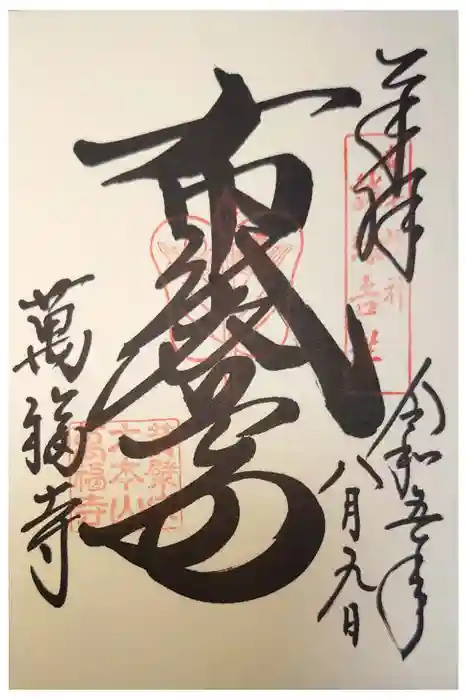 奉拝
令和五年
八月九日
布袋尊
黄檗宗
大本山
萬福寺
萬福寺